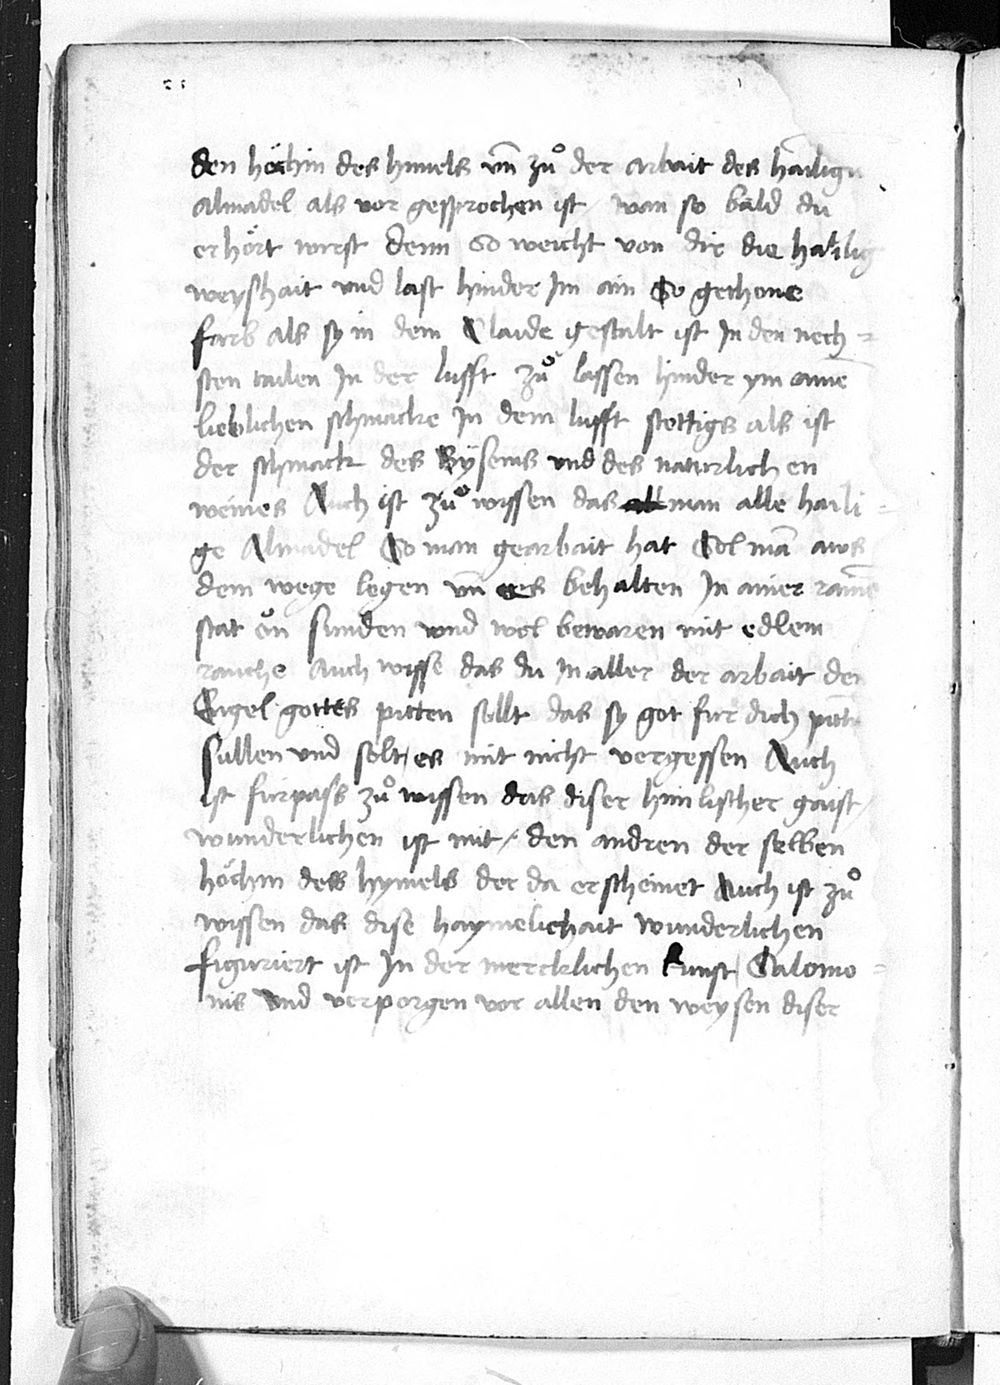 den höchin des himels vn̄ zů der arbait des hailign
almadel als vor gesprochen ist / wan so bald du
erhört wirst denn So weicht von dir die hailig
weyshait vnd last hinder Im ain So gethone
farb als sy in dem Claide gestalt ist In den nech =
sten tailen In der lufft zů lassen hinder ym ainē
lieblichen schmacke In dem lufft stettigs als ist
der schmack des Bÿsems vnd des naturlich en
weines Auch ist zů wissen das man alle haili =
ge Almadel So man gearbait hat Sol mā aws
dem wege legen vn̄ es behalten In ainer rainē
stat ön sunden vnd wol bewaren mit edlem
rauche Auch wisse das du In aller der arbait den
Engel gottes pitten sollt das sy got fur dich pitt
sullen vnd solt / es mit nicht vergessen Auch
ist furpass zů wissen das diser himlischer gaist /
wunderlichen ist mit / den andren der selben
höchin des hymels der da erscheinet Auch ist zů
wissen das dise haymelichait wunderlichen
figuriert ist In der mercklichen kunst / Salomo =
nis vnd verporgen vor allen den weysen diser